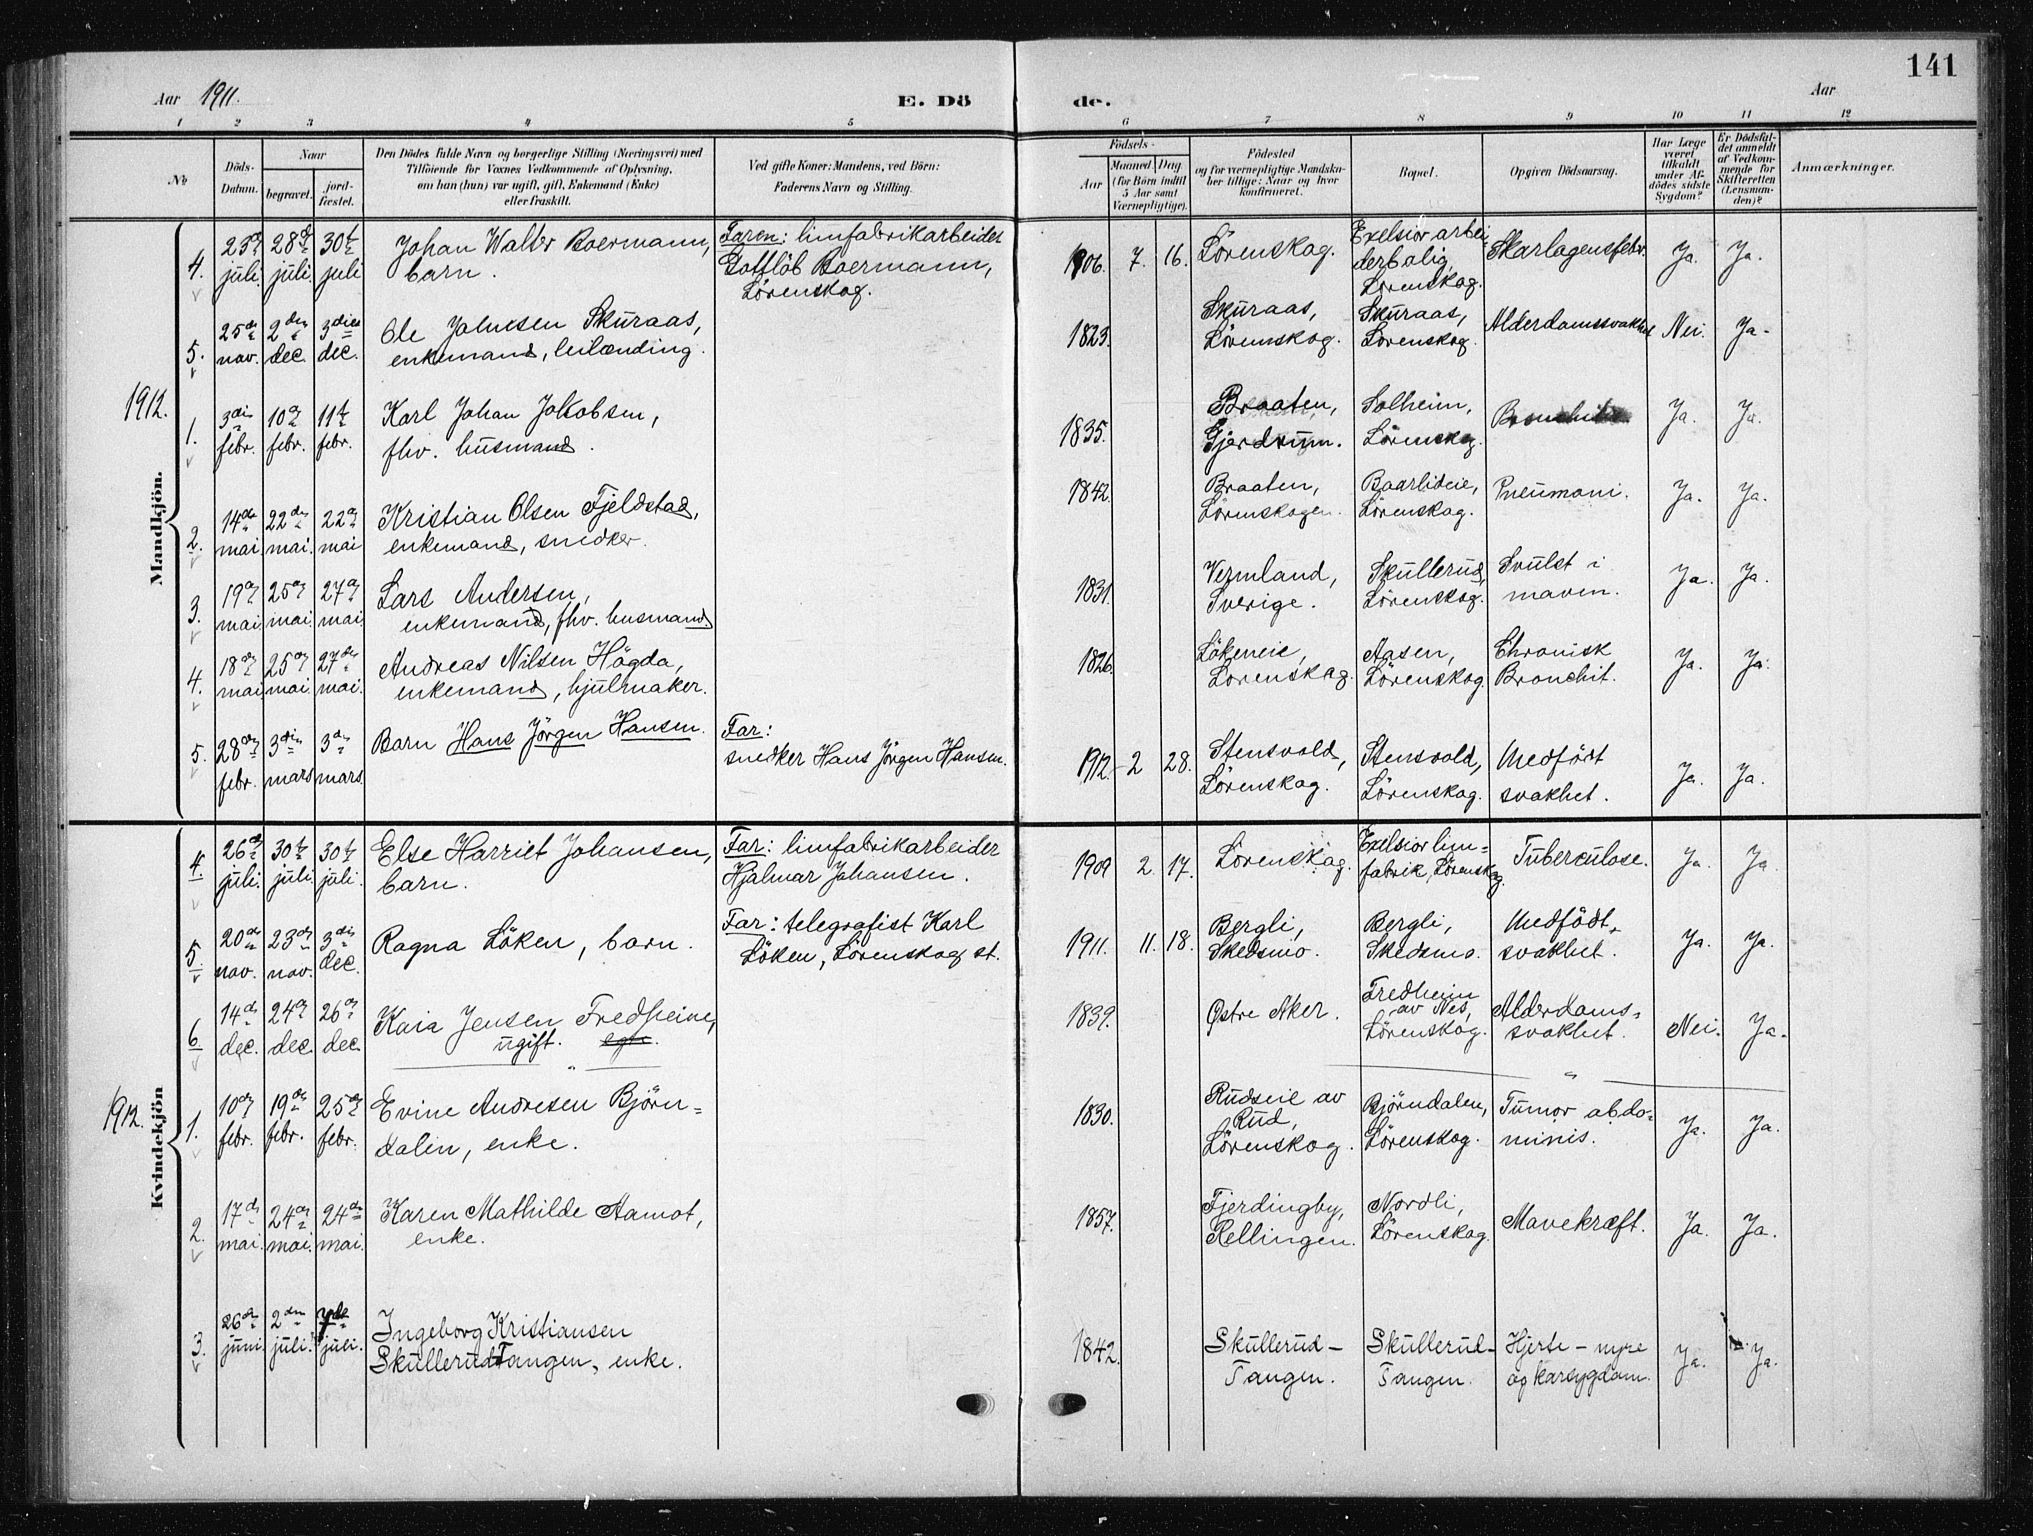 141
Aar 1911.
E. Dö
de.
Aar
1 2 3 4 5 6 7 8 9 10 11 12
No
Döds-
Datum.
Naar
begravet.
jord-
fæstet.
Den Dödes fulde Navn og borgerlige Stilling (Næringsvei) med
Tilföiende for Voxnes Vedkommende af Oplysning,
om han (hun) var ugift, gift, Enkemand (Enke)
eller fraskilt.
Ved gifte Koner: Mandens, ved Börn:
Faderens Navn og Stilling.
Födsels-
Aar
Maaned
Dag
(for Börn indtil
5 Aar samt
Værnepligtige).
Födested
og for værnepligtige Mandsku-
ber tillige: Naar og hvor
konfirmeret.
Bopæl.
Opgiven Dödsaarsag.
Har Læge
været
tilkaldt
under Af-
dödes sidste
Sygdom?
Er Dödsfal-
det anmeldt
af Vedkom-
mende for
Skifteretten
(Lensman-
den)?
Anmærkninger.
Mandkjön.
4. 23de juli. 28de juli. 30te juli
Johan Walter Boermann,
barn.
Faren: limfabrikarbeider
Gottlöb Boermann,
Lörenskog.
1906. 7. 16. Lörenskog.
Exelsior arbei
derbolig,
Lörenskog.
Skarlagensfebr.
Ja. Ja.
5. 25de nov. 2den dec. 3die dec.
Ole Johnesen Skuraas,
enkemand, leilænding.
1823.
Skuraas,
Lörenskog.
Skuraas,
Lörenskog.
Alderdomssvakhet
Nei. Ja.
1912.
1. 3die febr. 10de febr. 11te febr.
Karl Johan Jakobsen,
fhv. husmand.
1835.
Braaten,
Gjerdrum.
Solheim,
Lörenskog.
Bronchit
Ja. Ja.
2. 14de mai. 22den mai. 22de mai
Kristian Olsen Fjeldstad,
enkemand, snedker.
1842.
Braaten,
Lörenskogen.
Baarlideie,
Lörenskog.
Pneumoni.
Ja. Ja.
3. 19de mai. 25de mai. 27de mai.
Lars Andersen,
enkemand, fhv. husmand.
1831.
Vermland,
Sverige.
Skullerud,
Lörenskog.
Svulst i
maven.
Ja. Ja.
4. 18de mai. 25de mai. 27de mai.
Andreas Nilsen Högda,
enkemand, hjulmaker.
1826.
Lökeneie,
Lörenskog.
Aasen,
Lörenskog.
Chronisk
Bronchit.
Ja. Ja.
5. 28de febr. 3die mars. 3de mars.
Barn Hans Jörgen Hansen.
Far:
snedker Hans Jörgen Hansen.
1912. 2 28.
Stensvold,
Lörenskog.
Stensvold,
Lörenskog.
Medfödt
svakhet.
Ja. Ja.
Kvindekjön
4. 26de juli. 30te juli. 30te juli.
Else Harriet Johansen,
barn.
Far: limfabrikarbeider
Hjalmar Johansen.
1909 2. 17. Lörenskog.
Exelsior lim=
fabrik, Lörenskog.
Tuberculose.
Ja. Ja
5. 20de nov. 23de nov. 3die dec.
Ragna Löken, barn.
Far: telegrafist Karl
Löken, Lörenskog st.
1911. 11. 18.
Bergli,
Skedsmo.
Bergli,
Skedsmo.
Medfödt
svakhet.
Ja. Ja.
6. 14de dec. 24de dec. 26de dec.
Kaia Jensen Fredheim,
ugift.
1839. Østre Aker.
Fredheim
av Nes,
Lörenskog.
Alderdoms=
svakhet.
Nei. Ja.
1912.
1. 10de febr. 19de febr. 25de febr.
Evine Andresen Björn=
dalen, enke.
1830.
Rudseie av
Rud,
Lörenskog.
Björndalen,
Lörenskog.
Tumor abdo=
minis.
Ja. Ja.
2. 17de mai. 24de mai. 24de mai.
Karen Mathilde Aamot,
enke.
1857.
Fjerdingby,
Rellingen.
Nordli,
Lörenskog.
Mavekræft.
Ja. Ja.
3. 26de juni. 2den juli. 7de juli.
Ingeborg Kristiansen
SkullerudTangen, enke.
1842.
Skullerud-
Tangen.
Skullerud-
Tangen.
Hjerte- nyre
og karsygdom.
Ja. Ja.